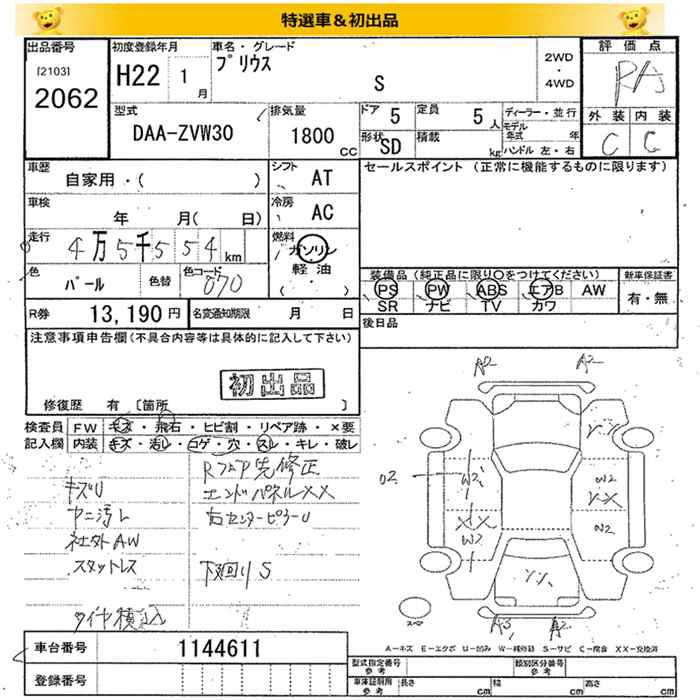 特選車＆初出品
出品番号
[2103]
2062
初度登録年月
H22 1 月
車名・グレード
プリウス
S
2WD
・
4WD
評価点
RA
外装 内装
C C
型式
DAA-ZVW30
排気量
1800 CC
ドア 5
定員 5 人
形状 SD
積載 kg
ディーラー・並行
モデル年式 年
ハンドル 左・右
車歴
自家用・( )
シフト
AT
車検
年 月( 日)
冷房
AC
走行
4万5千554km
燃料
ガソリン
軽油
( ・ )
色
パール
色替
色コード
070
R券 13,190円
名変通知期限 月 日
セールスポイント (正常に機能するものに限ります)
装備品 (純正品に限り〇をつけてください)
PS PW ABS エアB AW
SR ナビ TV カワ
新車保証書
有・無
後日品
注意事項申告欄(不具合内容等は具体的に記入して下さい)
初出品
修復歴 有 [箇所 ]
検査員記入欄
FW キズ・飛石・ヒビ割・リペア跡・×要
内装 キズ・汚レ・コゲ・穴・スレ・キレ・破レ
キズU
ヤニ汚レ
社外AW
スタットレス
タイヤ積込
Rフロア先修正
エンドパネルXX
右センターピラーU
下回りS
A2 A2
W2
XX
W2
W2
XX
W2
A2
A-キズ E-エクボ U-凹み W-補修跡 S-サビ C-腐食 XX-交換済
車台番号 1144611
登録番号
型式指定番号 参考
類別区分番号 参考
車庫証明用 参考
長さ cm
幅 cm
高さ cm